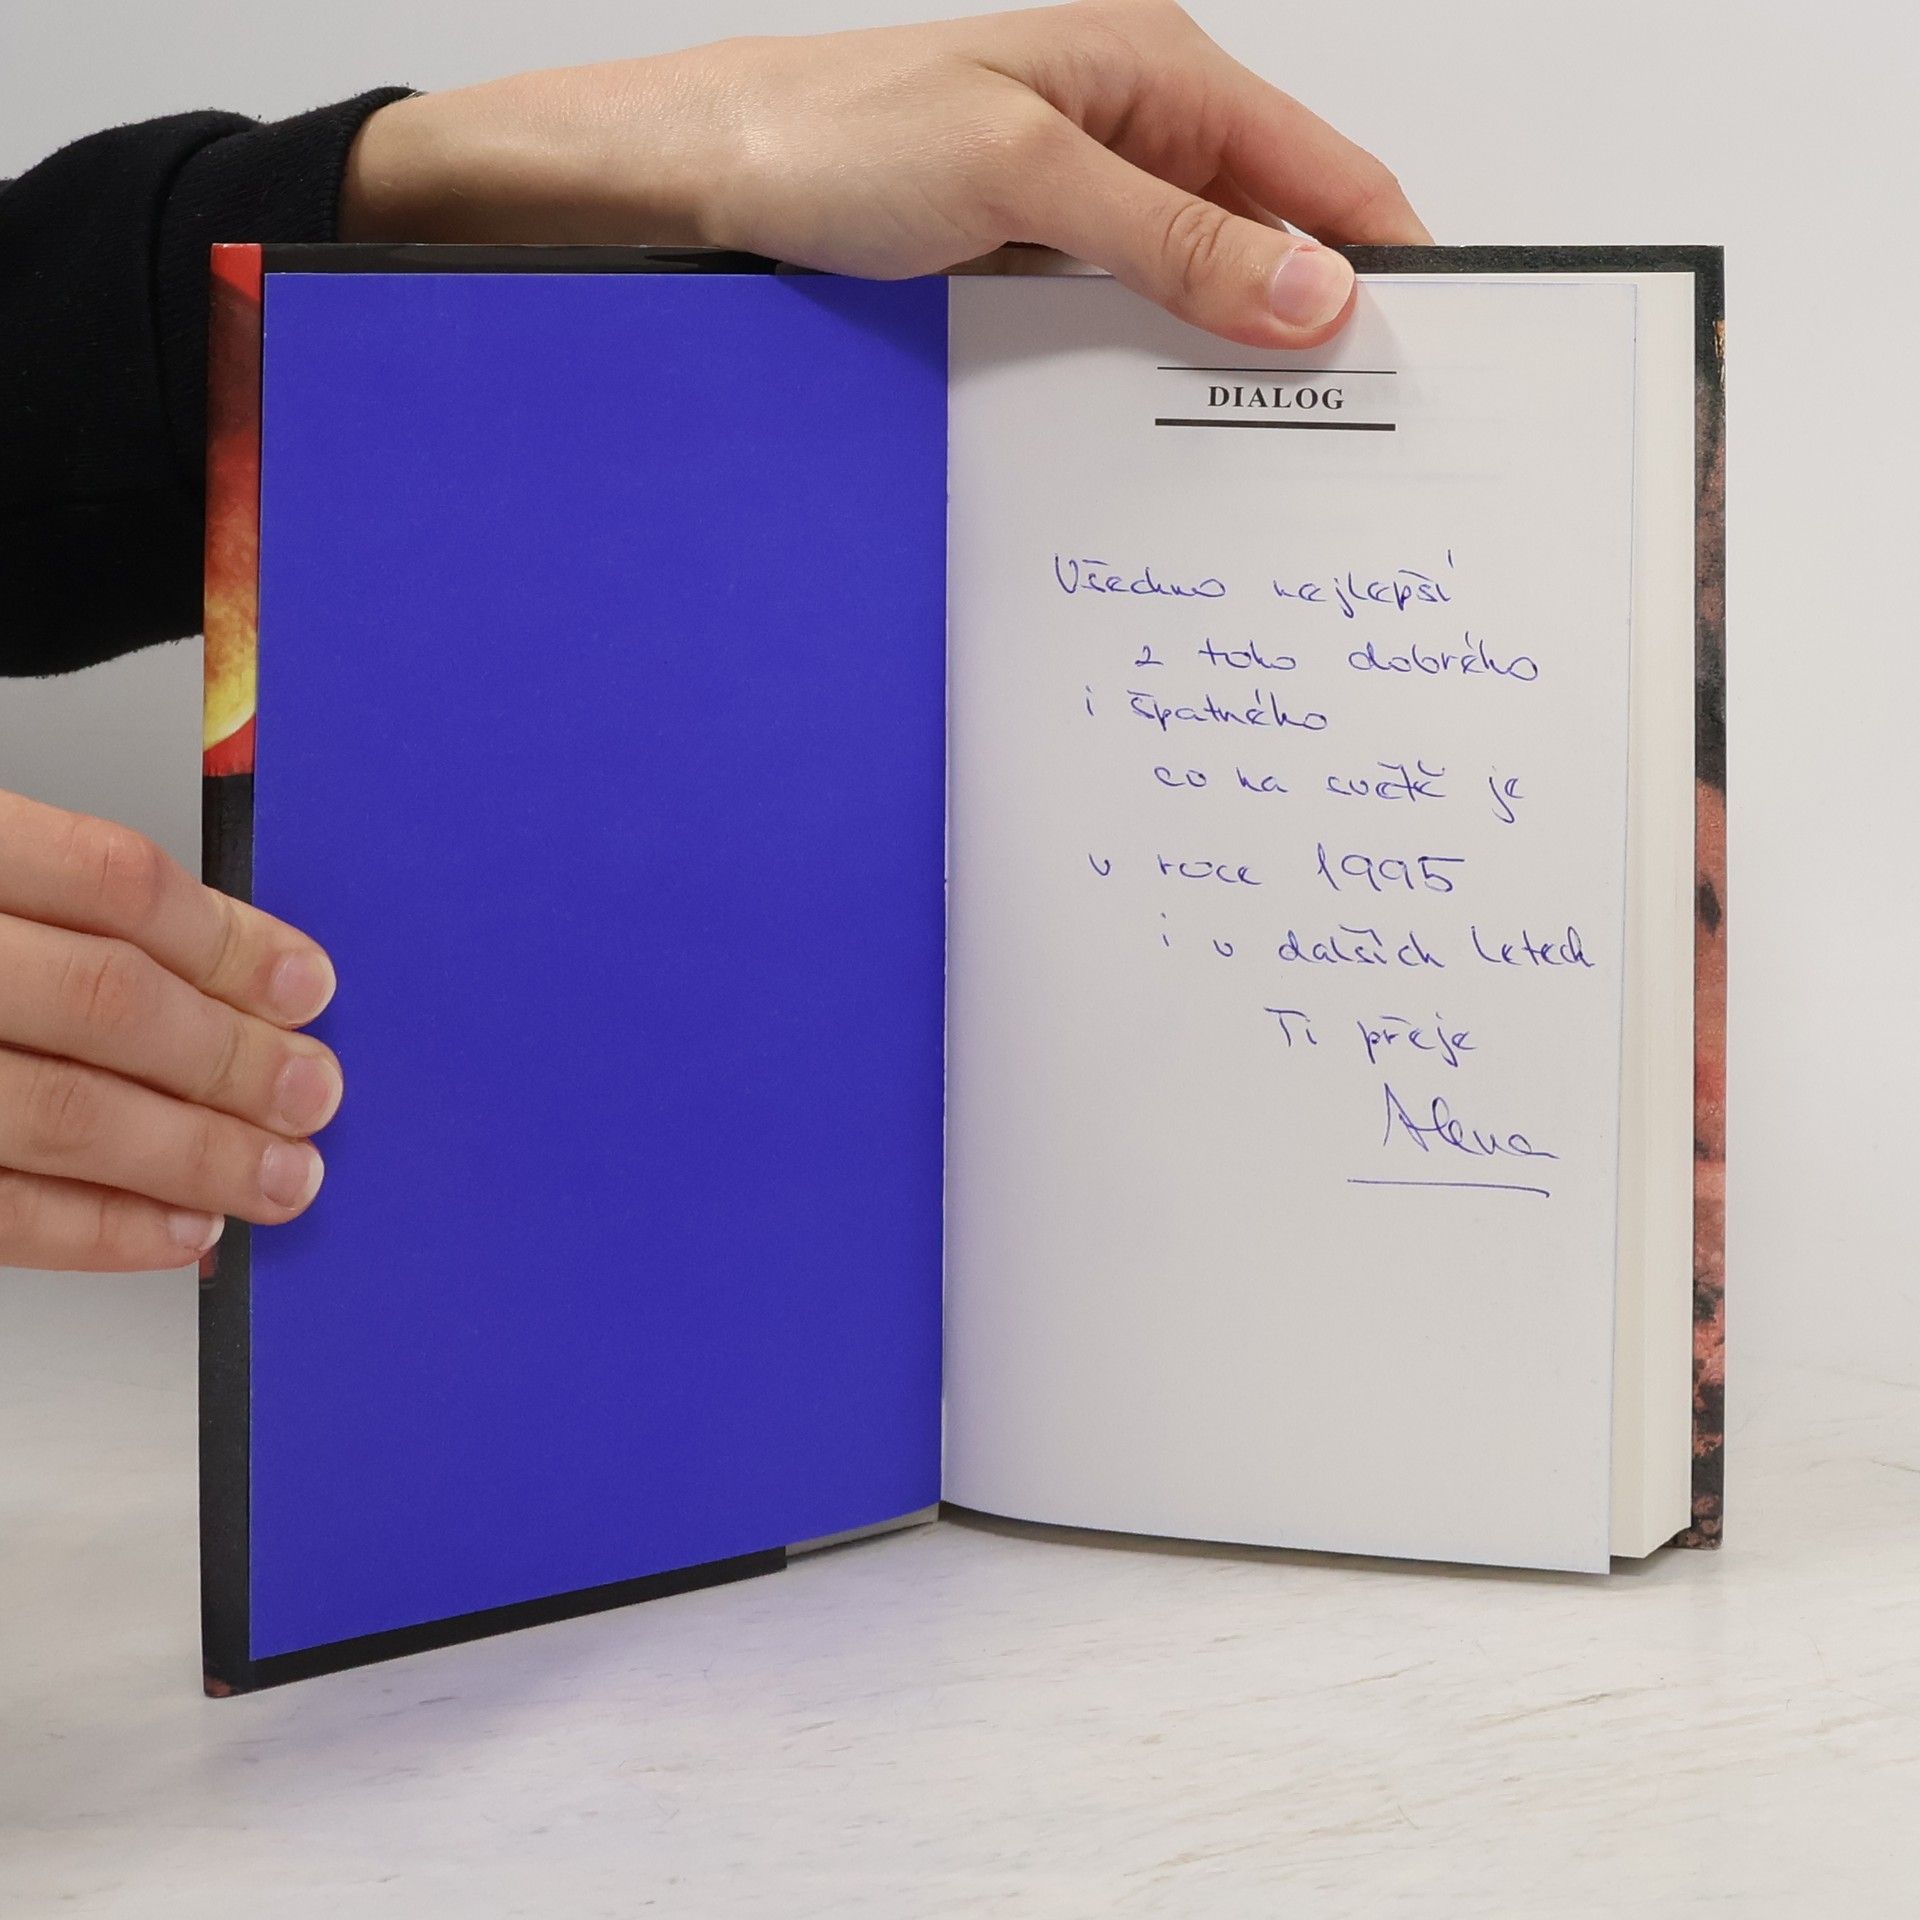 DIALOG
Všechno nejlepší
z toho dobrého
i špatného
co na světě je
v roce 1995
i v dalších letech
Ti přeje
Alena